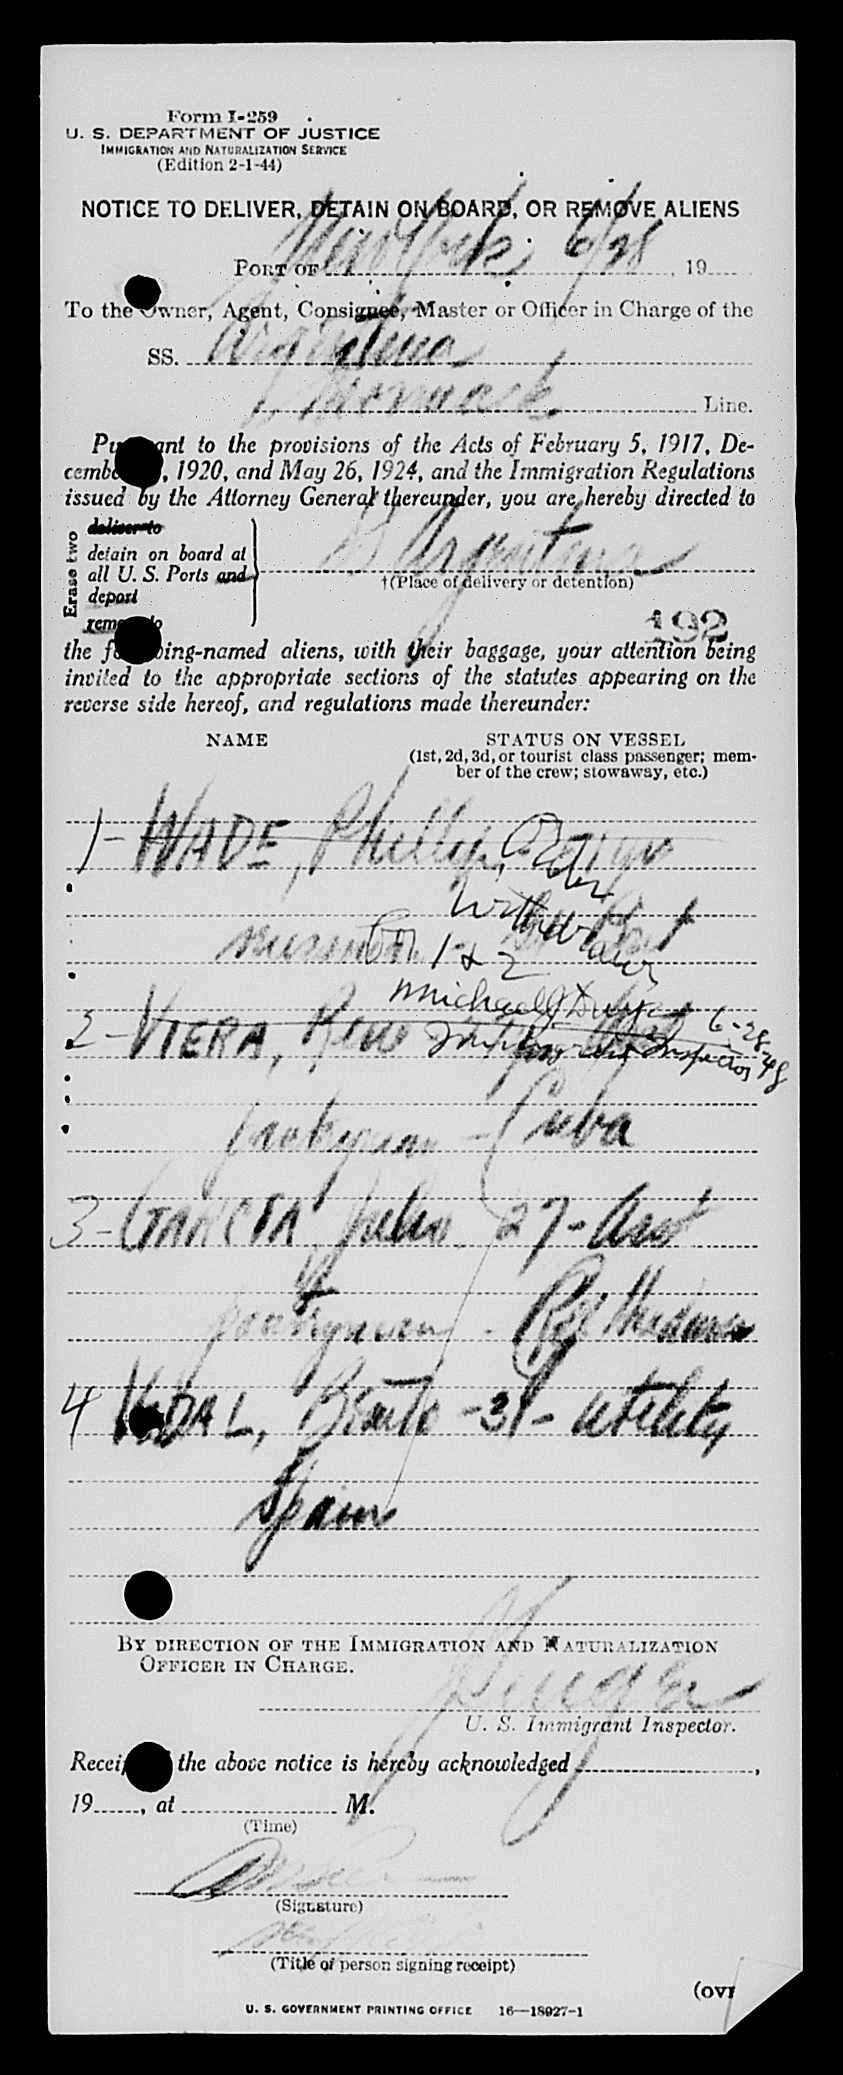 Form I-259
U. S. DEPARTMENT OF JUSTICE
IMMIGRATION AND NATURALIZATION SERVICE
(Edition 2-1-44)
NOTICE TO DELIVER, DETAIN ON BOARD, OR REMOVE ALIENS
PORT OF New York 6/28, 19
To the Owner, Agent, Consignee, Master or Officer in Charge of the
SS. Argentina
Line.
Pursuant to the provisions of the Acts of February 5, 1917, De-
cember, 1920, and May 26, 1924, and the Immigration Regulations
issued by the Attorney General thereunder, you are hereby directed to
Erase two
deliver to
detain on board at
all U. S. Ports and
deport
remove to
Argentina
†(Place of delivery or detention)
192
the following-named aliens, with their baggage, your attention being
invited to the appropriate sections of the statutes appearing on the
reverse side hereof, and regulations made thereunder:
NAME
STATUS ON VESSEL
(1st, 2d, 3d, or tourist class passenger; mem-
ber of the crew; stowaway, etc.)
1- WADE, Phillip,
Order
Withdrawn
for 1 & 2
Michael J
2- VIERA, 6-28-48
Immigrant Inspector
pantryman - Cuba
3- GARCIA, Julio 27- Asst
pantryman -
4 VIDAL, Benito -31- utility
Spain
BY DIRECTION OF THE IMMIGRATION AND NATURALIZATION
OFFICER IN CHARGE.
U. S. Immigrant Inspector.
Receipt of the above notice is hereby acknowledged ,
19 , at M.
(Time)
(Signature)
(Title of person signing receipt)
U. S. GOVERNMENT PRINTING OFFICE 16—18927-1